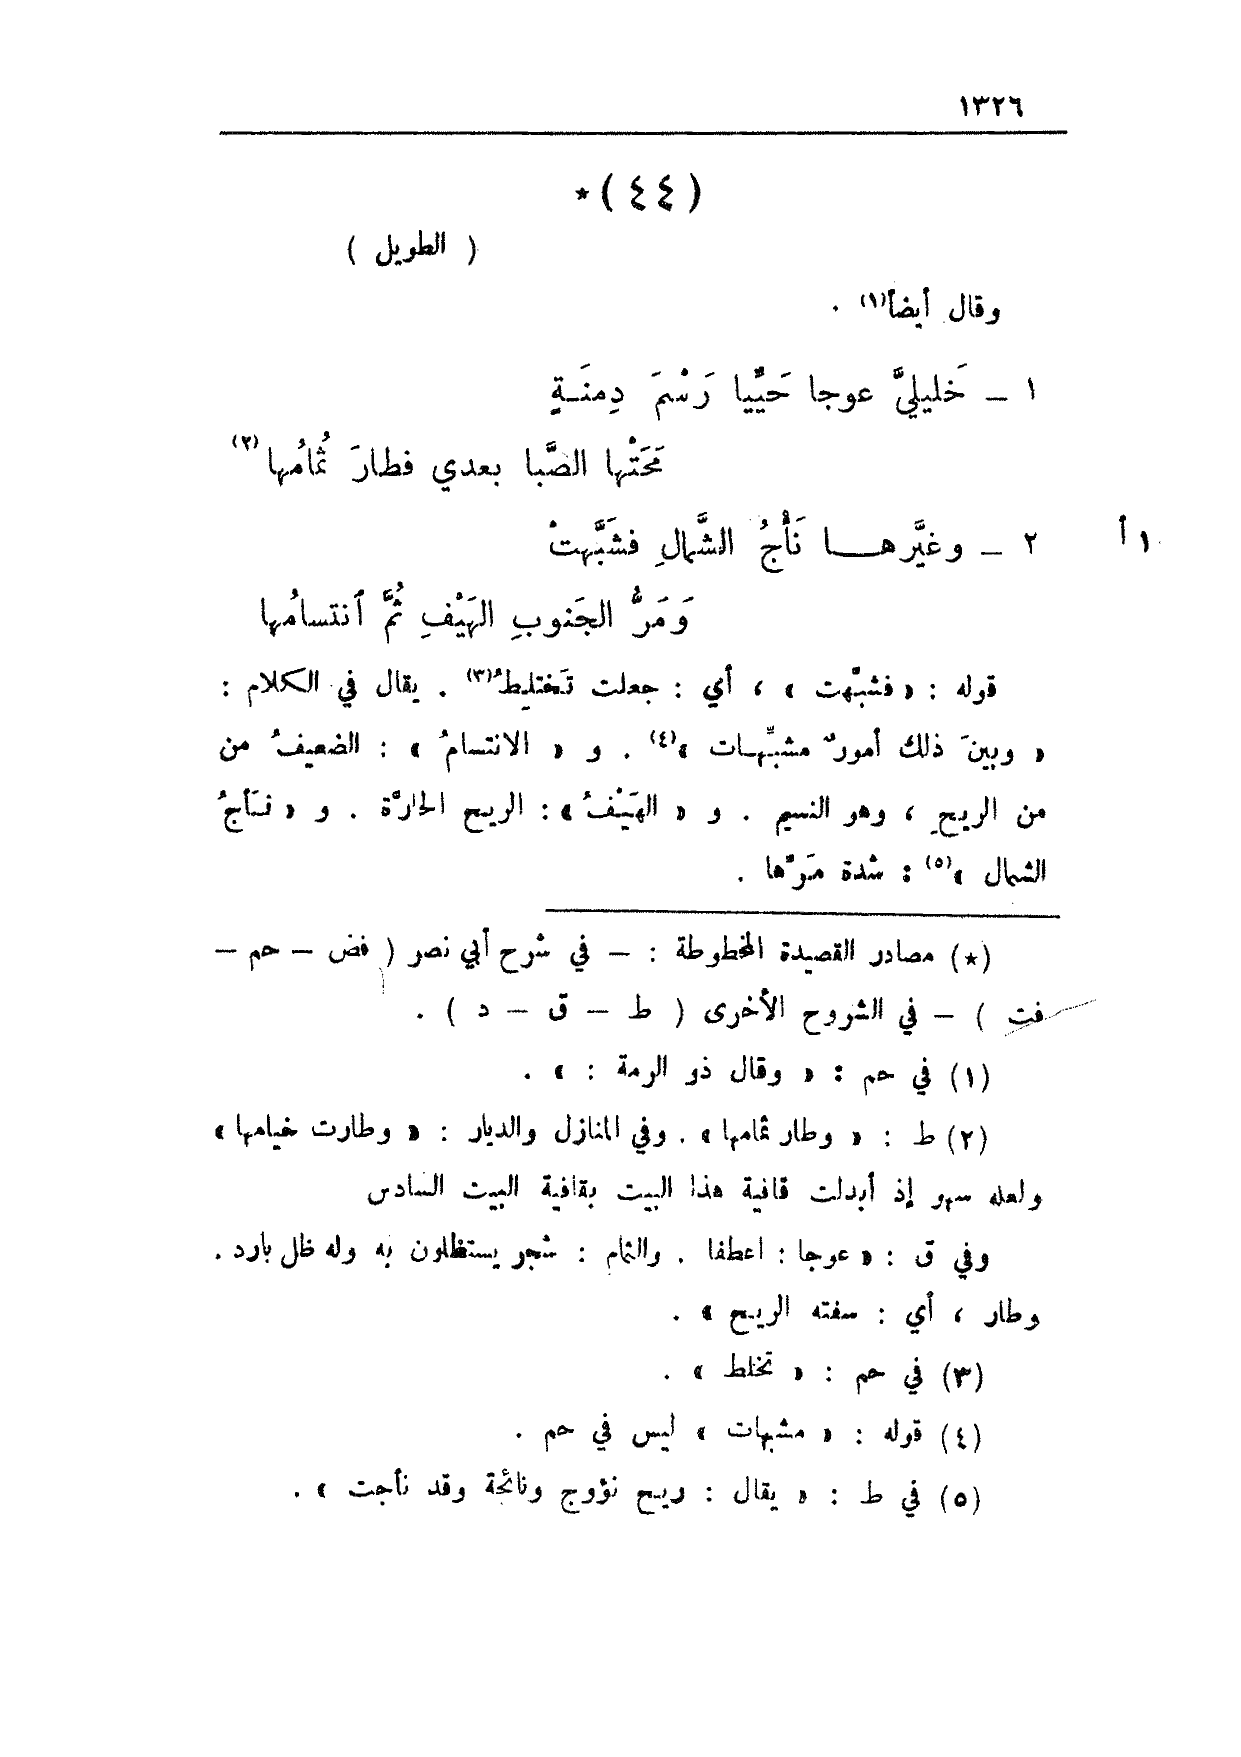 ١٣٢٦
(٤٤)*
( الطويل )
وقال أيضاً(١) .
١ ــ خَليليَّ عوجا حَيِّيا رَسْمَ دِمنَـةٍ
مَحَتْها الصَّبا بعدي فطارَ ثُمامُها(٢)
٢ ــ وغيَّرهـــا نَأْجُ الشَّمالِ فشَبَّهتْ
١ أ
وَمَرُّ الجَنوبِ الهَيْفِ ثُمَّ ٱنتسامُها
قوله : « فشبَّهت » ، أي : جعلت تَختلِطُ(٣) . يقال في الكلام :
« وبينَ ذلك أمورٌ مشبِّهـات »(٤) . و « الانتسامُ » : الضعيفُ من
من الريحِ ، وهو النسيم . و « الهَيْفُ » : الريح الحارَّة . و « نَأجُ
الشمال »(٥) : شدة مَرِّها .
(*) مصادر القصيدة المخطوطة : – في شرح أبي نصر ( فض – حم –
فت ) – في الشروح الأخرى ( ط – ق – د ) .
(١) في حم : « وقال ذو الرمة : » .
(٢) ط : « وطار ثمامها » . وفي المنازل والديار : « وطارت خيامها »
ولعله سهو إذ أبدلت قافية هذا البيت بقافية البيت السادس
وفي ق : « عوجا : اعطفا . والثمام : شجر يستظلون به وله ظل بارد .
وطار ، أي : سفته الريح » .
(٣) في حم : « تخلط » .
(٤) قوله : « مشبهات » ليس في حم .
(٥) في ط : « يقال : ريح نؤوج ونائجة وقد نأجت » .